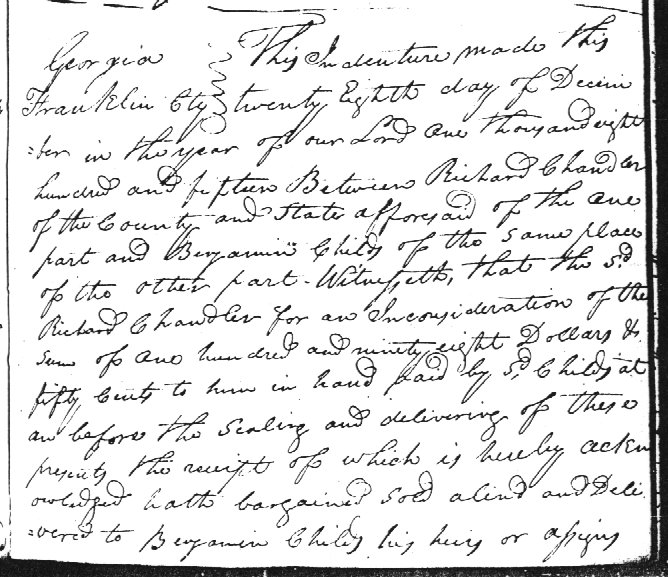 Georgia This Indenture made this
Franklin Cty twenty Eighth day of Decem
=ber in the year of our Lord One thousand eight
hundred and fifteen Between Richard Chandler
of the County and State afforesaid of the One
part and Benjamin Childs of the same place
of the other part - Witnesseth, that the Sd.
Richard Chandler for an Inconsideration of the
Sum of One hundred and ninety eight Dollars &
fifty Cents to him in hand paid by Sd. Childs at
an before the Sealing and delivering of these
presents the receipt of which is hereby ackn
owledged hath bargained Sold aliend and Deli
=vered to Benjamin Childs his heirs or assigns